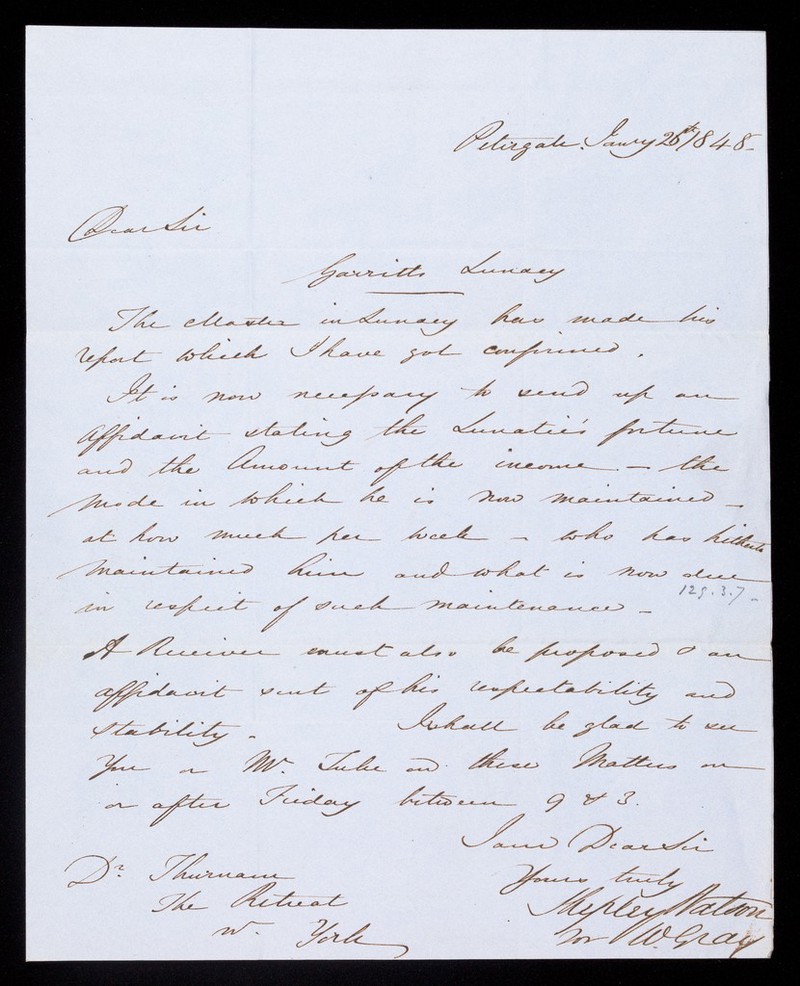 Petergate. Jany 26th 1848-
Dear Sir
Garritts Lunacy
The Master in Lunacy has made his
report which I have got confirmed.
It is now necessary to send up an
Affidavit stating the Lunatic's fortune
and the Amount of the income - the
Mode in which he is now maintained -
at how much per week - who has hitherto
Maintained him and what is now due
129.3.7-
in respect of such maintenance -
A Receiver must also be proposed & an
affidavit sent of his respectability and
stability. I shall be glad to see
You or Mr. Tuke on these Matters on
or after Friday between 9 & 3.
I am Dear Sir
Yours truly
Shepley Watson
for W. Gray
Dr. Thurnam
The Retreat
York